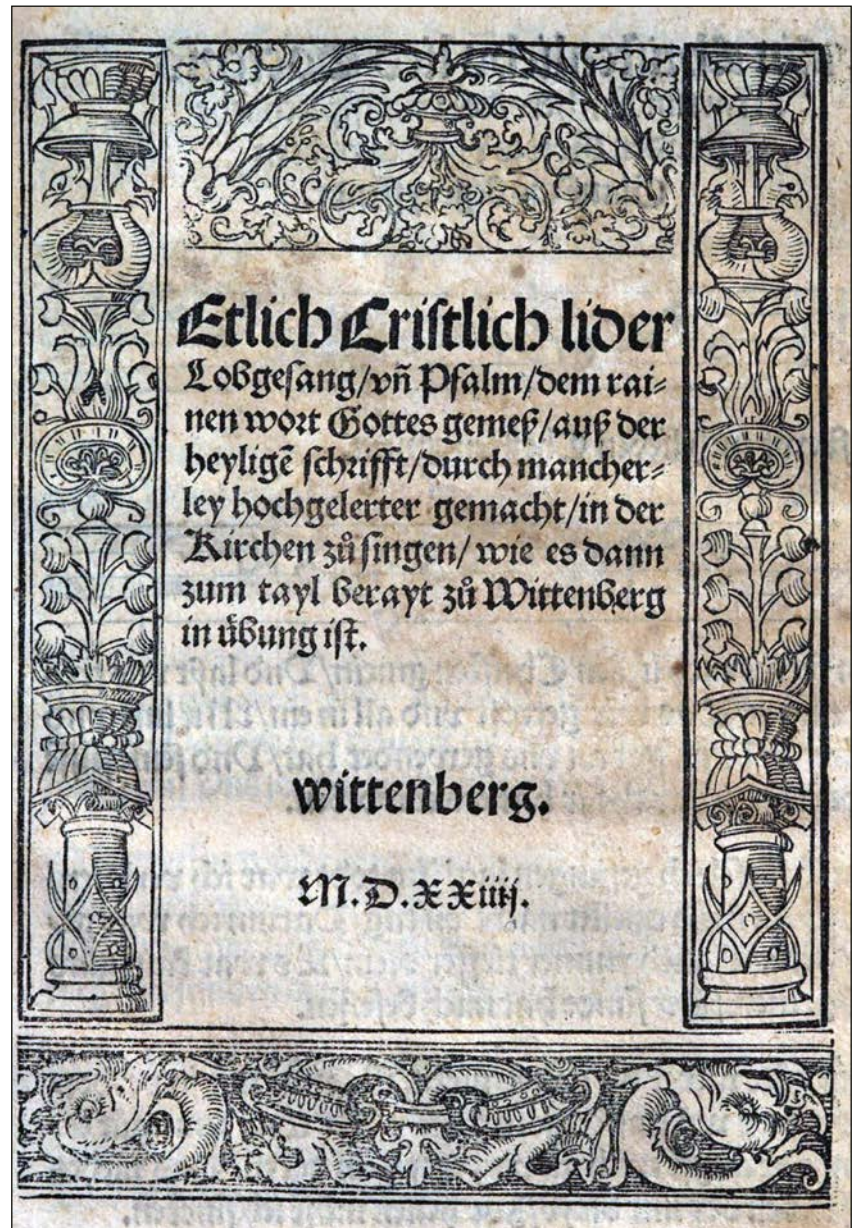 Etlich Cristlich lider
Lobgesang/vñ Psalm/dem rai⸗
nen wort Gottes gemeß/auß der
heyligẽ schrifft/durch mancher⸗
ley hochgelerter gemacht/in der
Kirchen zů singen/ wie es dann
zum tayl berayt zů Wittenberg
in übung ist.
wittenberg.
M.D.XXiiij.